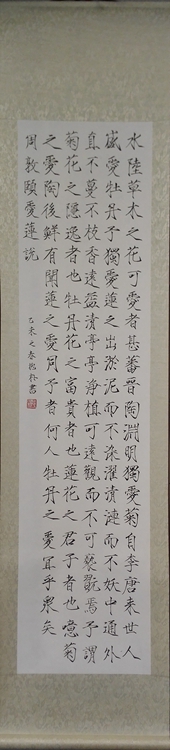 水陸草木之花可愛者甚蕃晉陶淵明獨愛菊自李唐來世人
盛愛牡丹予獨愛蓮之出淤泥而不染濯清漣而不妖中通外
直不蔓不枝香遠益清亭亭淨植可遠觀而不可褻翫焉予謂
菊花之隱逸者也牡丹花之富貴者也蓮花之君子者也噫菊
之愛陶後鮮有聞蓮之愛同予者何人牡丹之愛宜乎眾矣
周敦頤愛蓮說
乙未之春書